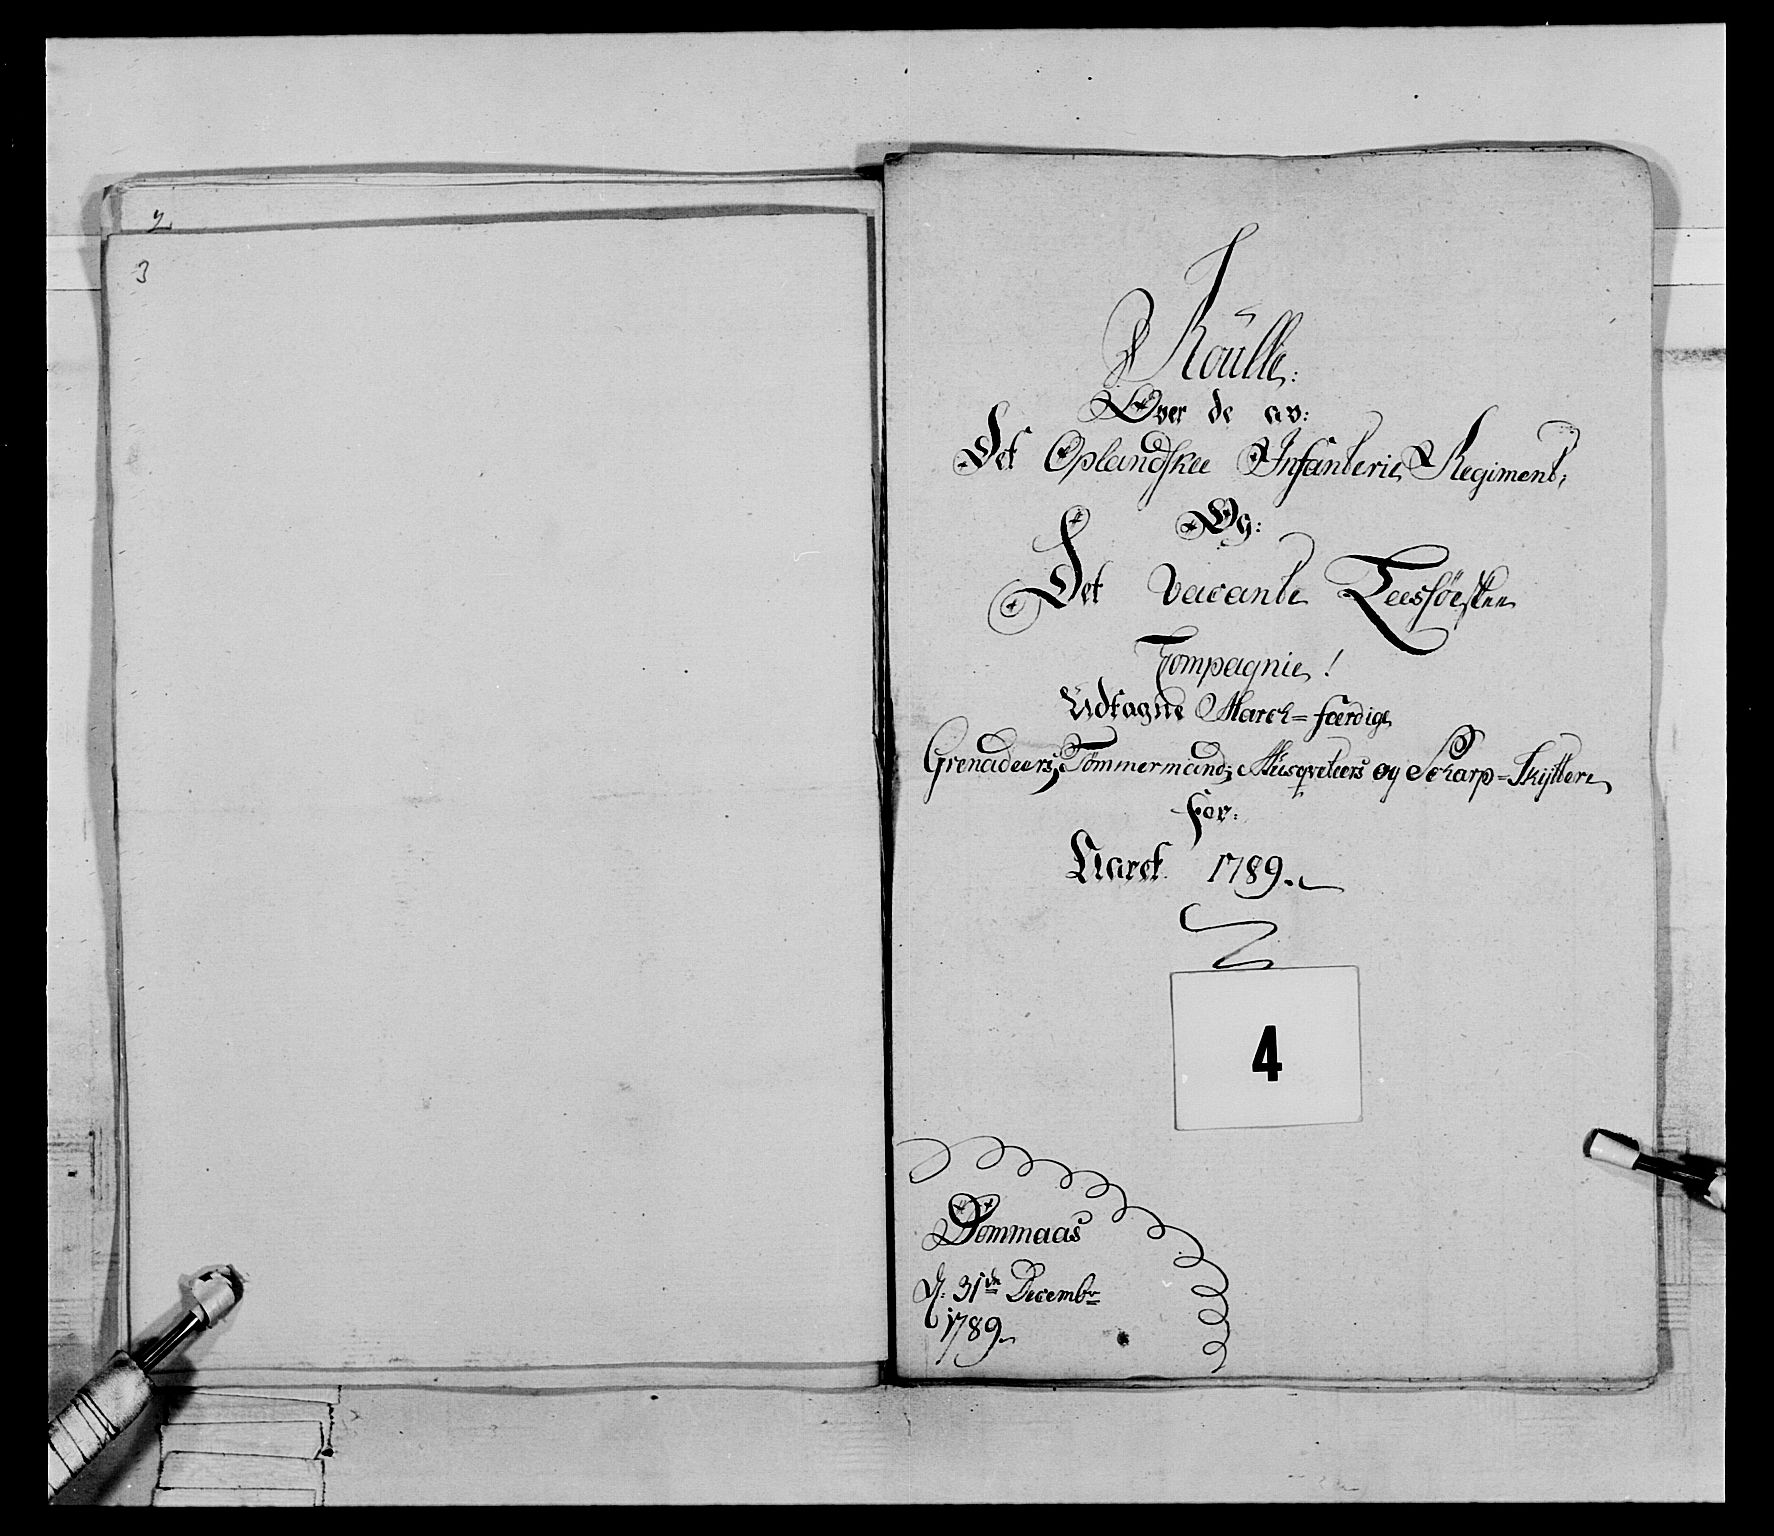 2
3
Roulle:
Over de av:
Det Oplandskee Infanterie Regiment;
Og:
Det vacante Leessöeskee
Compagnie!
Udtagne March=færdige
Grenadeers, Tömmermænd, Musqveteers og Scharp=Skyttere
for:
Aaret 1789.
4
Dommaas
d: 31de Decembr
1789.